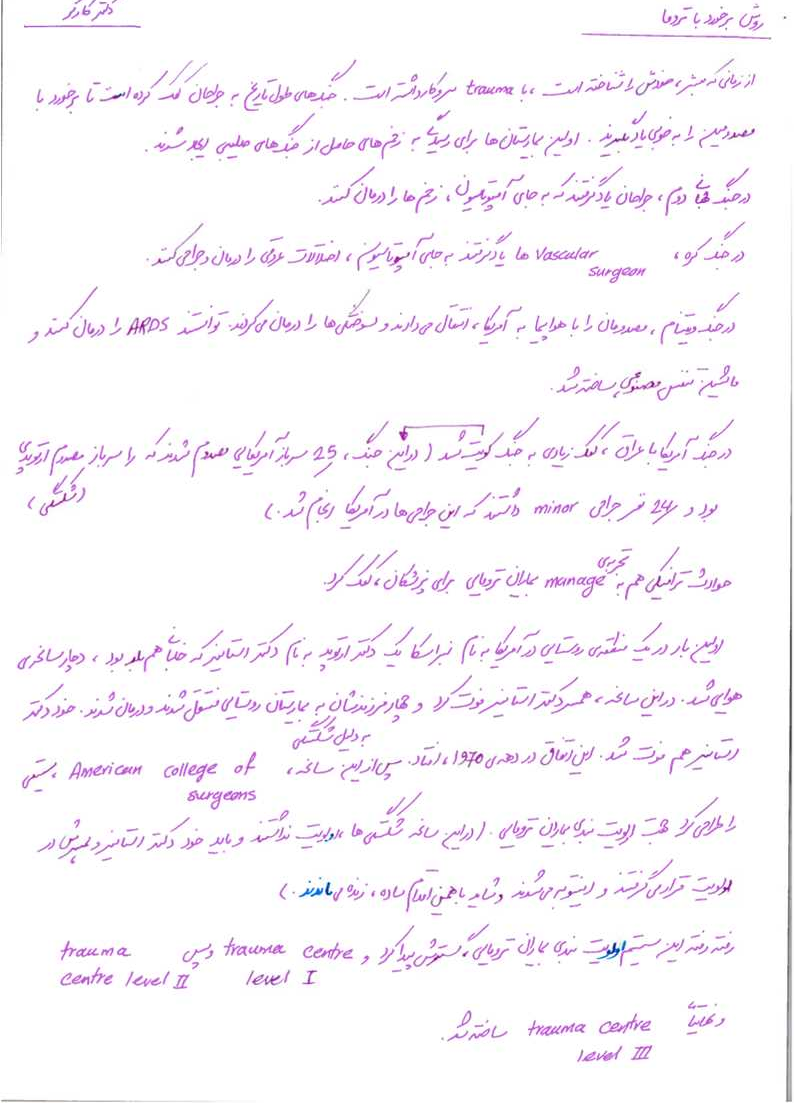 روش برخورد با تروما
دکتر کارگر
از زمانی که بشر، خودش را شناخته است، با trauma سروکار داشته است. جنگ‌های طول تاریخ به جراحان کمک کرده است تا برخورد با
مصدومین را به خوبی یاد بگیرند. اولین بیمارستان‌ها برای رسیدگی به زخم‌های حاصل از جنگ‌های صلیبی ایجاد شدند.
در جنگ جهانی دوم، جراحان یاد گرفتند که به جای آمپوتاسیون، زخم‌ها را درمان کنند.
در جنگ کره، Vascular surgeon ها یاد گرفتند به جای آمپوتاسیون، اختلالات عروقی را درمان و جراحی کنند.
در جنگ ویتنام، مصدومان را با هواپیما به آمریکا، انتقال می‌دادند و سوختگی‌ها را درمان می‌کردند. توانستند ARDS را درمان کنند و
ماشین تنفس مصنوعی ساخته شد.
در جنگ آمریکا با عراق، کمک زیادی به جنگ کویت شد (در این جنگ، 25 سرباز آمریکایی مصدوم شدند که را سرباز مصدوم ارتوپدی (شکستگی)
بود و 24 نفر جراحی minor داشتند که این جراحی‌ها در آمریکا انجام شد.)
حوادث ترافیکی هم به تجربه‌ی manage بیماران ترومایی برای پزشکان، کمک کرد.
اولین بار در یک منطقه‌ی روستایی در آمریکا به نام نبراسکا یک دکتر ارتوپد به نام دکتر استاینر که خلبان هم بود، دچار سانحه‌ی
هوایی شد. در این سانحه، همسر دکتر استاینر فوت کرد و چهار فرزندشان به بیمارستان روستایی منتقل شدند و درمان شدند. خود دکتر
استاینر هم فوت شد. این اتفاق در دهه‌ی 1970، افتاد. پس از این سانحه، به دلیل شکستگی American college of surgeons، سیستمی
را طراحی کرد جهت اولویت بندی بیماران ترومایی. (در این سانحه شکستگی‌ها، اولویت نداشتند و باید خود دکتر استاینر و همسرش در
اولویت قرار می‌گرفتند و اینتوبه می‌شدند و شاید با همین اقدام ساده، زنده می‌ماندند.)
رفته رفته این سیستم اولویت بندی بیماران ترومایی، گسترش پیدا کرد و trauma centre level I و سپس trauma centre level II
و نهایتاً trauma centre level III ساخته شد.